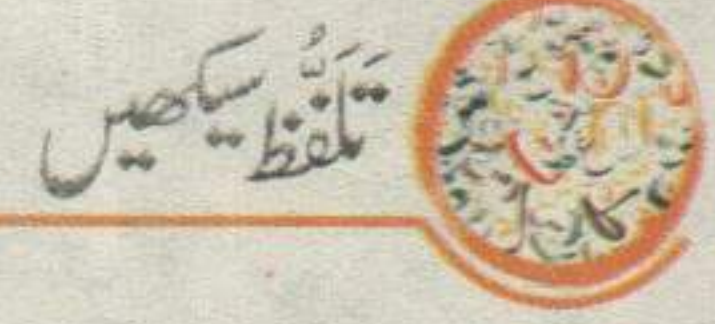 تَلَفُّظ سیکھیں